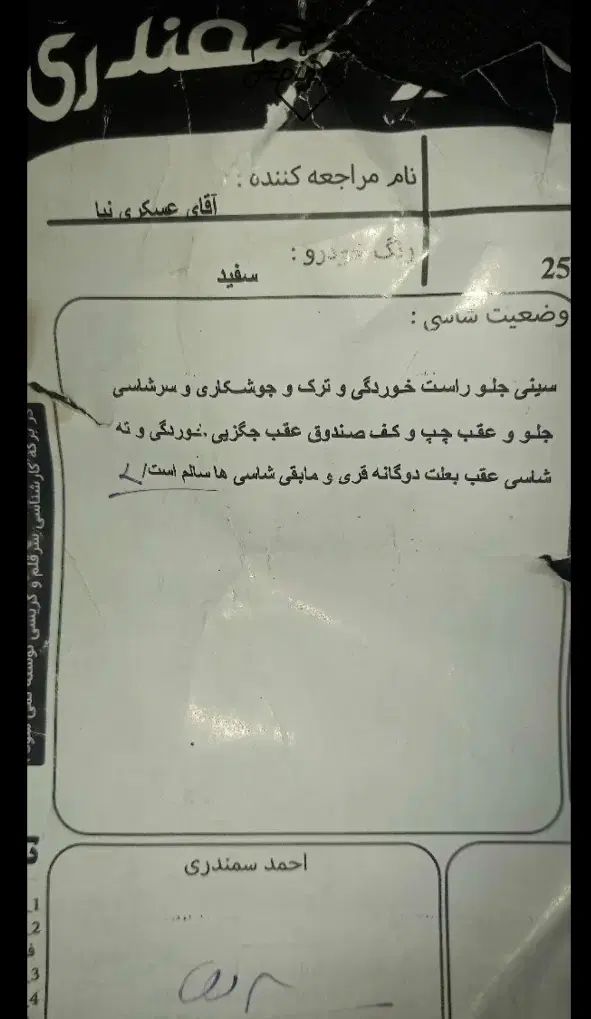 سمندری
نام مراجعه کننده :
آقای عسکری نیا
رنگ خودرو :
سفید
25
وضعیت شاسی :
سینی جلو راست خوردگی و ترک و جوشکاری و سرشاسی
جلو و عقب چپ و کف صندوق عقب جگزیی ,خوردگی و ته
شاسی عقب بعلت دوگانه قری و مابقی شاسی ها سالم است/
در برگه کارشناسی سرقلم و
احمد سمندری
1
2
3
4